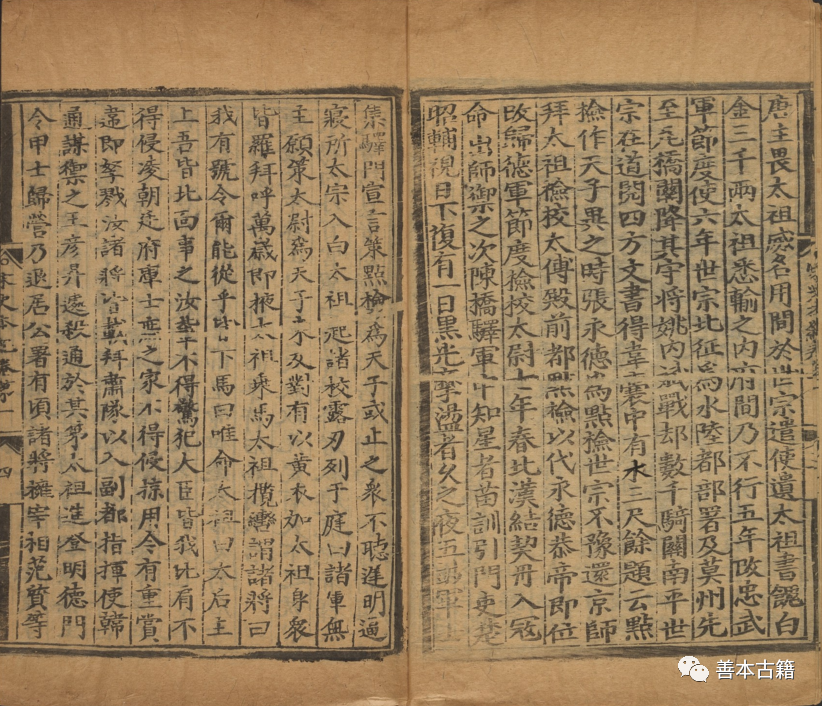 唐主畏太祖威名用間於世宗遣使遺太祖書餽白
金三千兩太祖悉輸之内府間乃不行五年改忠武
軍節度使六年世宗北征為水陸都部署及莫州先
至瓦橋關降其守将姚内斌戰却數千騎關南平世
宗在道閱四方文書得韋囊中有木三尺餘題云點
撿作天子異之時張永德為點撿世宗不豫還京師
拜太祖撿校太傅殿前都點撿以代永德恭帝即位
改歸德軍節度撿校太尉七年春北漢結契丹入冦
命出師禦之次陳橋驛軍中知星者苗訓引門吏楚
昭輔視日下復有一日黑光摩盪者久之夜五鼓軍士
集驛門宣言策點撿為天子或止之衆不聽遲明逼
寢所太宗入白太祖起諸校露刃列于庭曰諸軍無
主願策太尉為天子未及對有以黄衣加太祖身衆
皆羅拜呼萬歳即掖太祖乘馬太祖攬轡謂諸將曰
我有號令爾能從乎皆下馬曰唯命太祖曰太后主
上吾皆北面事之汝輩不得驚犯大臣皆我比肩不
得侵凌朝廷府庫士庶之家不得侵掠用令有重賞
違即孥戮汝諸將皆載拜肅隊以入副都指揮使韓
通謀禦之王彦昇遽殺通於其第太祖進登明德門
令甲士歸營乃退居公署有頃諸將擁宰相范質等
宋史本紀卷第一
四
善本古籍